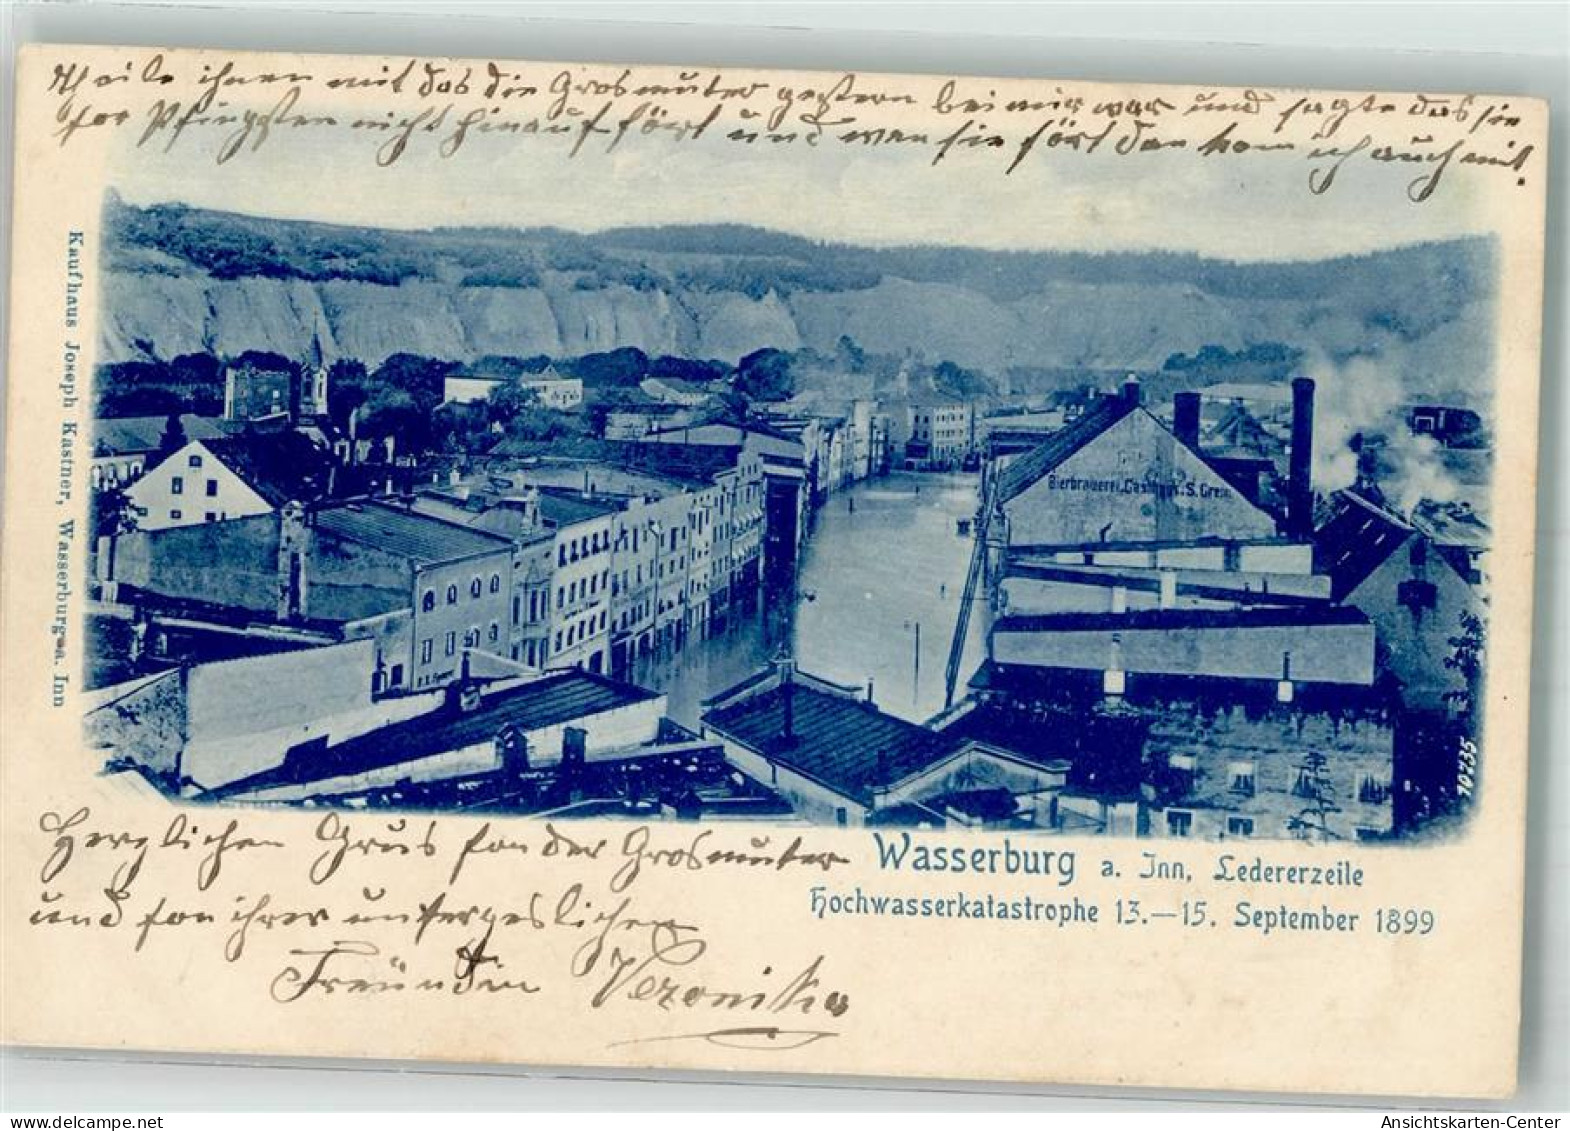 Theile ihnen mit das die Grosmutter gestern bei mir war und sagte das sie
for Pfingsten nicht hinauf fört und wen sie fört dan kom ich auch mit.
Kaufhaus Joseph Kastner, Wasserburg a. Inn
Bierbrauerei, Gasthaus S. Grein
10735
Herzlichen Grus fon der Grosmutter
und fon ihrer unfergeslichen
Freundin Veronika
Wasserburg a. Inn, Ledererzeile
Hochwasserkatastrophe 13.—15. September 1899
Ansichtskarten-Center
www.delcampe.net